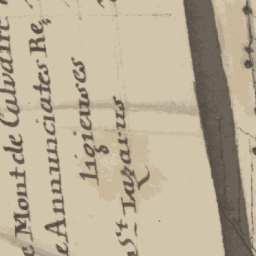 Mont de Calvaire
Annunciates Re
ligieuses
St Lazarus